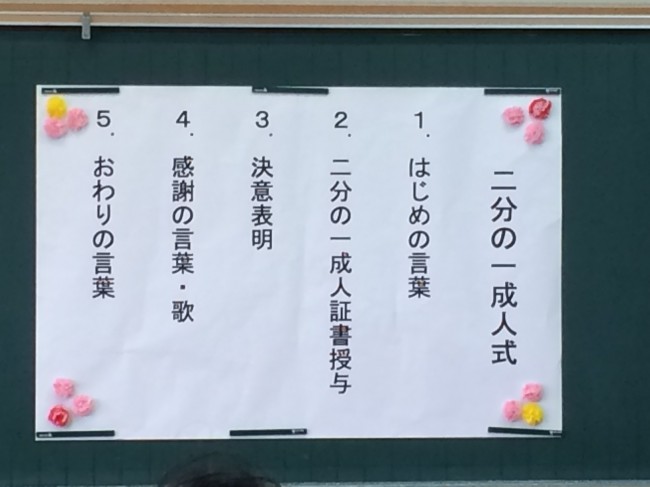 二分の一成人式
1. はじめの言葉
2. 二分の一成人証書授与
3. 決意表明
4. 感謝の言葉・歌
5. おわりの言葉